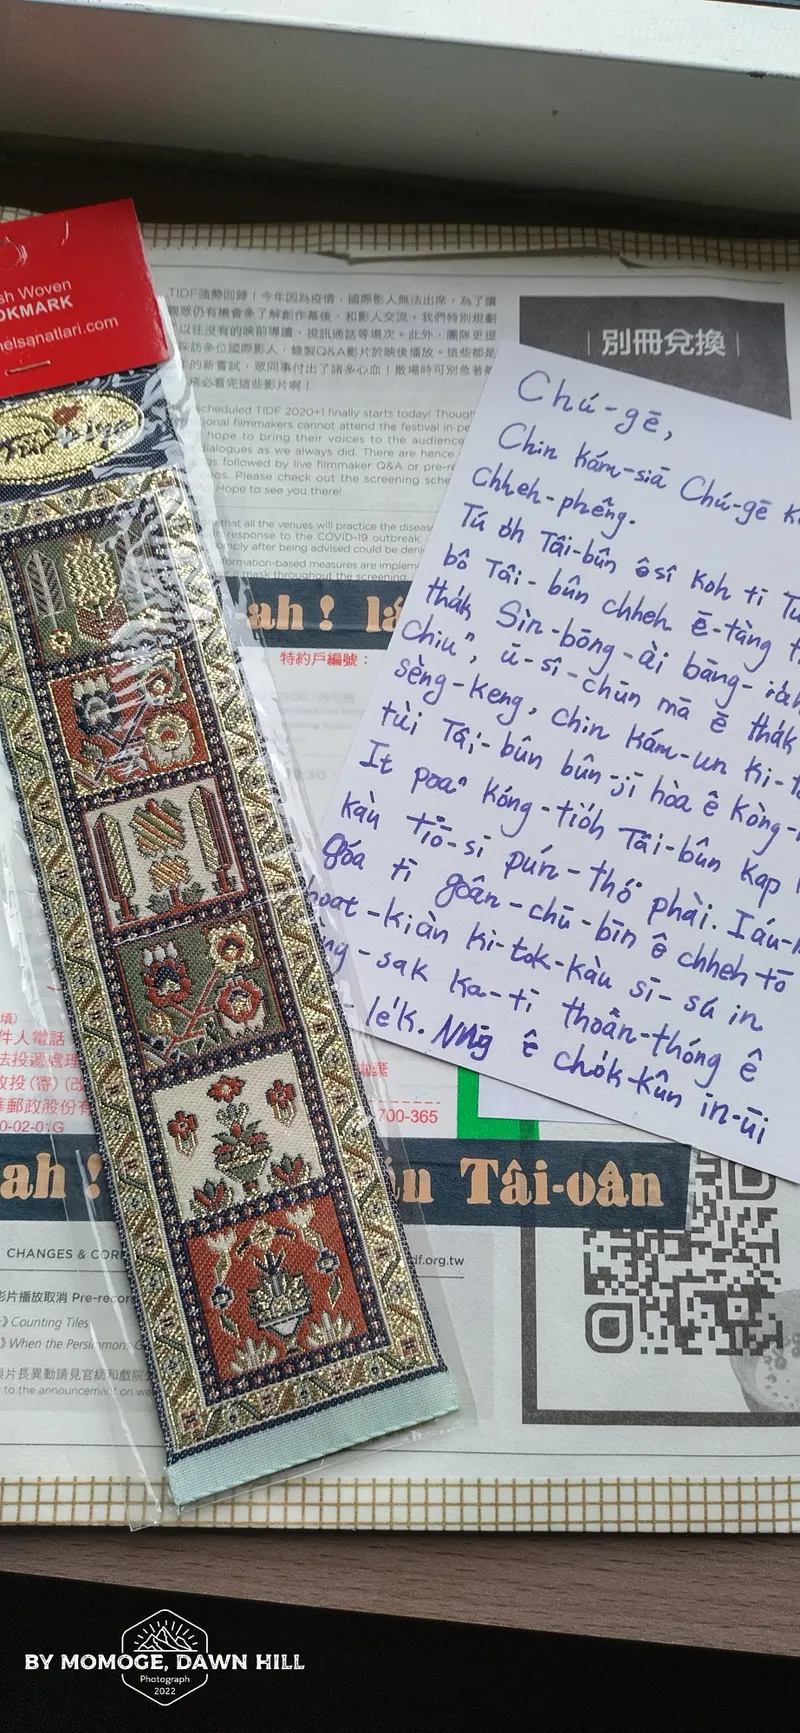 sh Woven
OKMARK
nelsanatlari.com
Türkiye
TIDF強勢回歸！今年因為疫情，國際影人無法出席，為了讓
眾仍有機會多了解創作幕後，和影人交流，我們特別規劃
以往沒有的映前導讀、視訊通話等場次。此外，團隊更提
採訪多位國際影人，錄製Q&A影片於映後播放。這些都是
的新嘗試，眾同事付出了諸多心血！散場時可別急著
必看完這些影片啊！
cheduled TIDF 2020+1 finally starts today! Though
ional filmmakers cannot attend the festival in pe
hope to bring their voices to the audience
alogues as we always did. There are hence
s followed by live filmmaker Q&A or pre-r
os. Please check out the screening sche
Hope to see you there!
that all the venues will practice the disease
response to the COVID-19 outbreak
mply after being advised could be deni
formation-based measures are implem
mask throughout the screening.
｜別冊兌換｜
ah ! lá
特約戶編號：
Chú-gē,
Chin kám-siā Chú-gē k
chheh-phêng.
Tú o̍h Tâi-bûn ê sî koh tī Tu
bô Tâi-bûn chheh ē-tàng t
tha̍k Sìn-bōng-ài bāng-ia̍h
chiuⁿ, ū-sî-chūn mā ē tha̍k
sèng-keng, chin kám-un ki-t
tùi Tâi-bûn bûn-jī hòa ê kòng-h
It poaⁿ kóng-tio̍h Tâi-bûn kap
kàu tiō-sī pún-thó͘ phài. Iáu-
góa tī goân-chū-bîn ê chheh tō
hoat-kiàn ki-tok-kàu sī-sú in
ng-sak ka-tī thoân-thóng ê
le̍k. Nn̄g ê cho̍k-kûn in-ūi
填)
件人電話
法投遞處理
攻投(審)(改
華郵政股份有
0-02-01G
700-365
ah !
án Tâi-oân
CHANGES & COR
df.org.tw
影片播放取消 Pre-recor
》Counting Tiles
》When the Persimmon
片長異動請見官網和戲院
to the announcement on we
BY MOMOGE, DAWN HILL
Photograph
2022